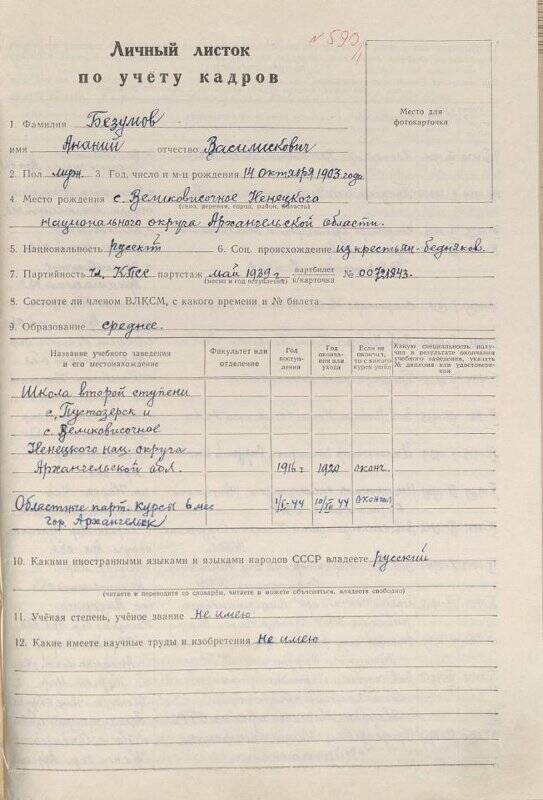 № 590/1
Личный листок
по учету кадров
Место для
фотокарточки
1 Фамилия Безумов
имя Ананий отчество Василискович
2. Пол муж. 3. Год, число и м-ц рождения 14 октября 1903 года
4. Место рождения с. Великовисочное Ненецкого
(село, деревня, город, район, область)
национального округа Архангельской области.
5. Национальность русский 6. Соц. происхождение из крестьян-бедняков.
7. Партийность чл. КПСС партстаж май 1939 г партбилет № 00721843.
(месяц и год вступления) к/карточка
8. Состоите ли членом ВЛКСМ, с какого времени и № билета
9. Образование среднее.
Название учебного заведения и его местонахождение
Факультет или отделение
Год поступления
Год окончания или ухода
Если не окончил, то с какого курса ушел
Какую специальность получил в результате окончания учебного заведения, указать № диплома или удостоверения
Школа второй ступени
с. Пустозерск и
с. Великовисочное
Ненецкого нац. округа
Архангельской обл. 1916 г 1920 оконч.
Областные парт. курсы 6 мес 44 44 окончил
гор. Архангельск
10. Какими иностранными языками и языками народов СССР владеете русский
(читаете и переводите со словарём, читаете и можете объясняться, владеете свободно)
11. Учёная степень, учёное звание Не имею
12. Какие имеете научные труды и изобретения Не имею